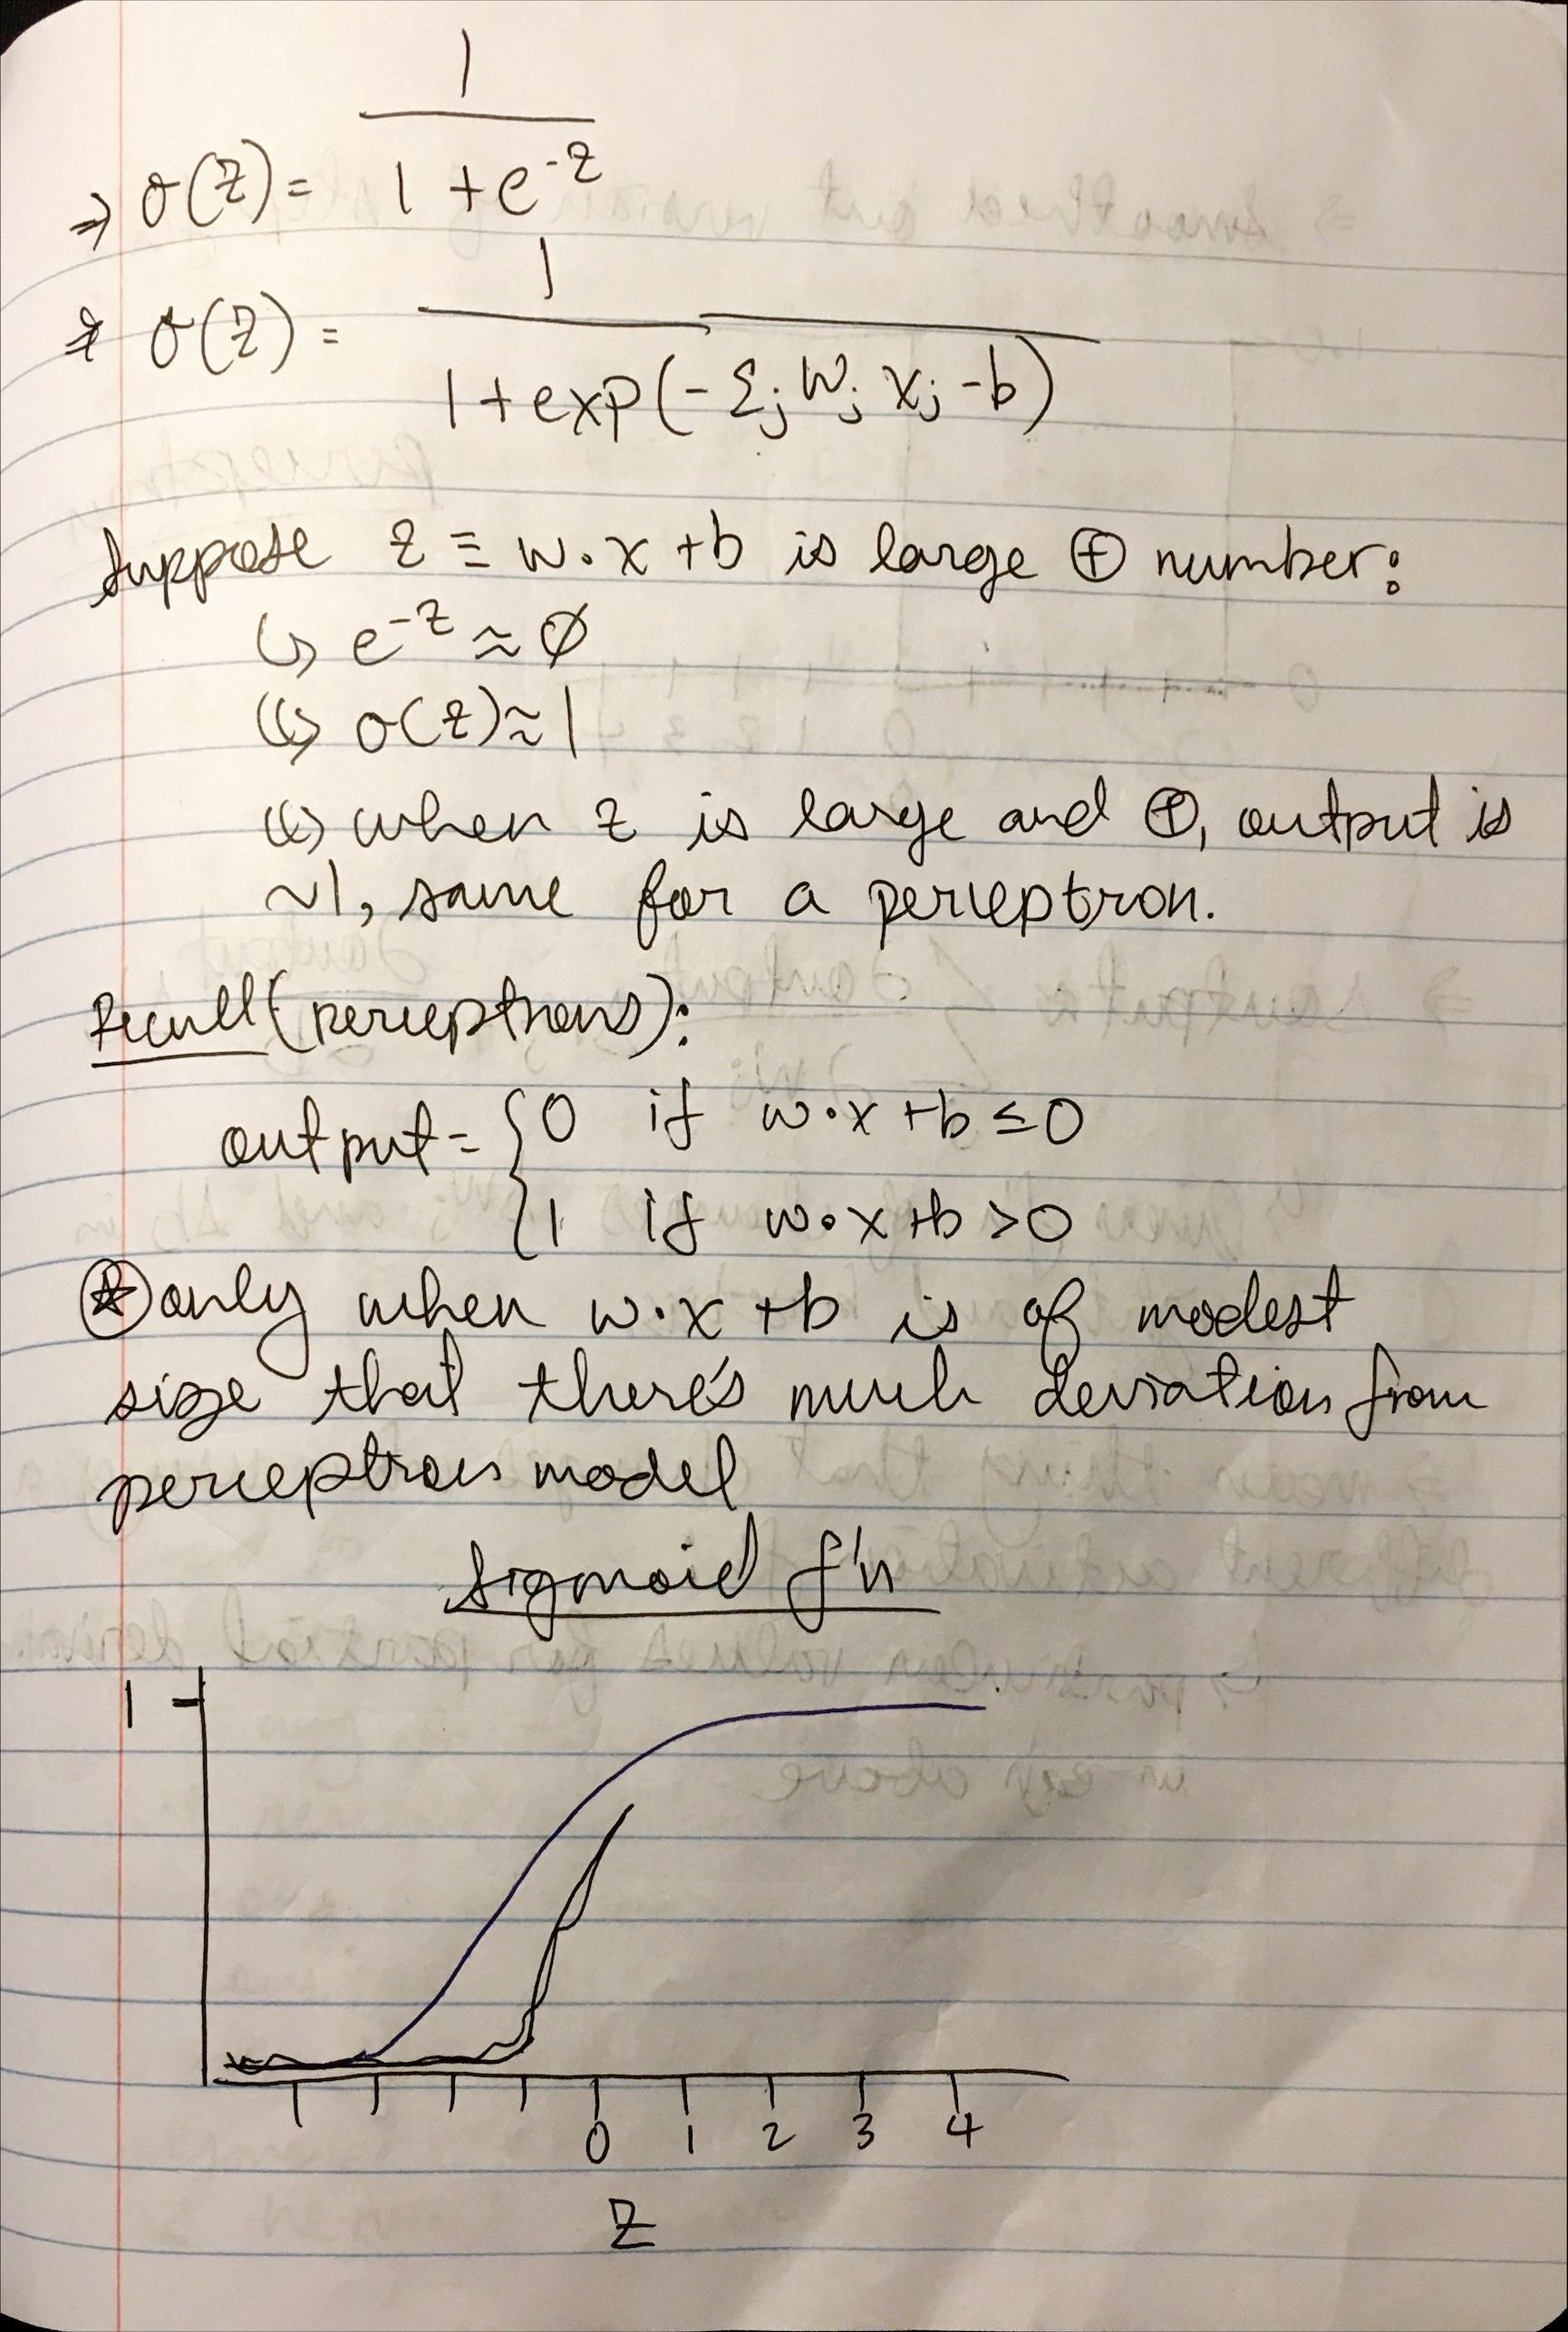 ⇒ σ(z) = 1 / (1 + e^-z)
⇒ σ(z) = 1 / (1 + exp(-Σj wj xj - b))
Suppose z ≡ w·x + b is large ⊕ number:
↳ e^-z ≈ ∅
↳ σ(z) ≈ 1
↳ when z is large and ⊕, output is
~1, same for a perceptron.
Recall (perceptrons):
output = { 0 if w·x + b ≤ 0
1 if w·x + b > 0
⍟ only when w·x + b is of modest
size that there's much deviation from
perceptron model
Sigmoid f'n
1
0 1 2 3 4
Z